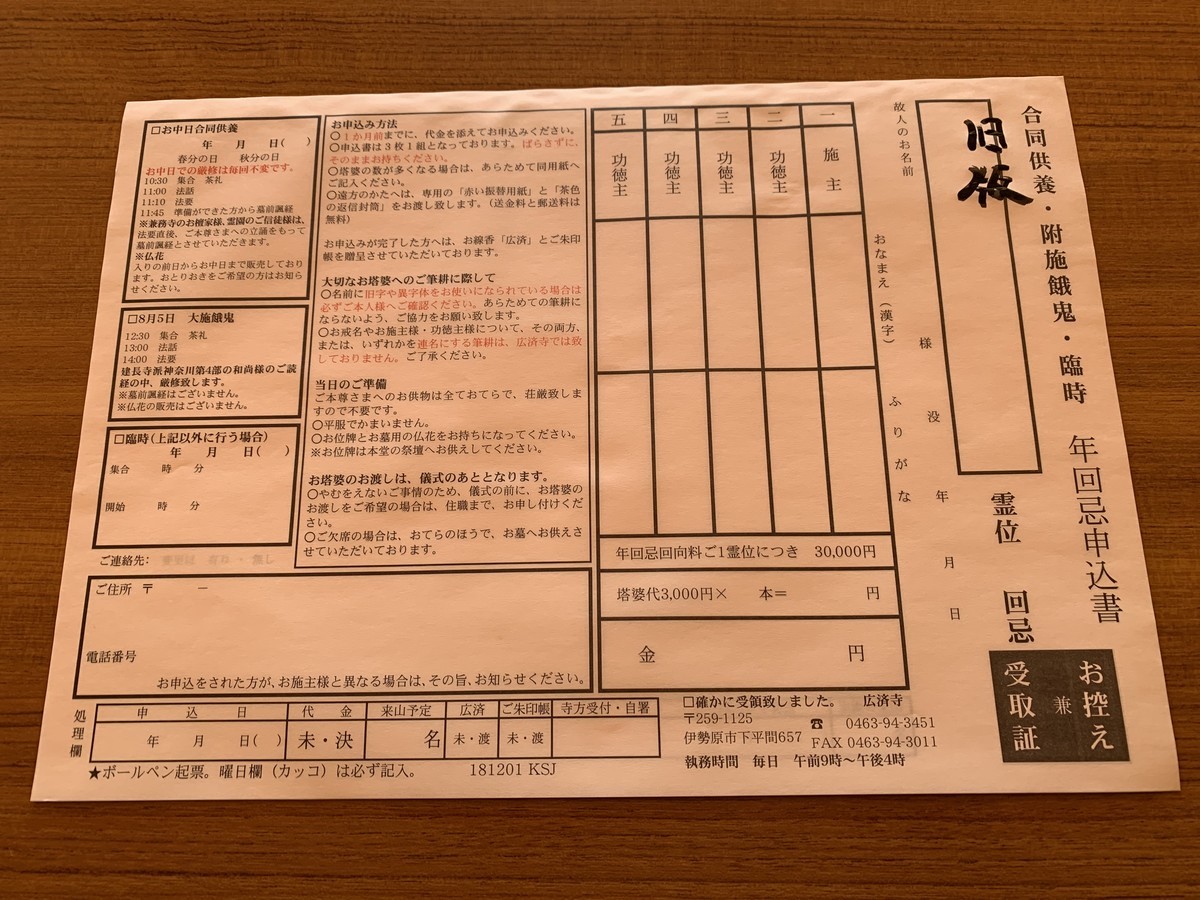 合同供養・附施餓鬼・臨時 年回忌申込書
旧版
霊位 回忌
お控え
兼
受取証
故人のお名前
様 没 年 月 日
おなまえ(漢字) ふりがな
一 施主
二 功徳主
三 功徳主
四 功徳主
五 功徳主
年回忌回向料ご1霊位につき 30,000円
塔婆代3,000円× 本= 円
金 円
お申込み方法
○1か月前までに、代金を添えてお申込みください。
○申込書は3枚1組となっております。ばらさずに、
そのままお持ちください。
○塔婆の数が多くなる場合は、あらためて同用紙へ
ご記入ください。
○遠方のかたへは、専用の「赤い振替用紙」と「茶色
の返信封筒」をお渡し致します。(送金料と郵送料は
無料)
お申込みが完了した方へは、お線香「広済」とご朱印
帳を贈呈させていただいております。
大切なお塔婆へのご筆耕に際して
○名前に旧字や異字体をお使いになられている場合は
必ずご本人様へご確認ください。あらための筆耕に
ならないよう、ご協力をお願い致します。
○お戒名やお施主様・功徳主様について、その両方、
または、いずれかを連名にする筆耕は、広済寺では致
しておりません。ご了承ください。
当日のご準備
ご本尊さまへのお供物は全ておてらで、荘厳致しま
すので不要です。
○平服でかまいません。
○お位牌とお墓用の仏花をお持ちになってください。
※お位牌は本堂の祭壇へお供えしてください。
お塔婆のお渡しは、儀式のあととなります。
○やむをえないご事情のため、儀式の前に、お塔婆の
お渡しをご希望の場合は、住職まで、お申し付けくだ
さい。
○ご欠席の場合は、おてらのほうで、お墓へお供えさ
せていただいております。
□お中日合同供養
年 月 日( )
春分の日 秋分の日
お中日での厳修は毎回不変です。
10:30 集合 茶礼
11:00 法話
11:10 法要
11:45 準備ができた方から墓前諷経
※兼務寺のお檀家様、霊園のご信徒様は、
法要直後、ご本尊さまへの立誦をもって
墓前諷経とさせていただきます。
※仏花
入りの前日からお中日まで販売しており
ます。おとりおきをご希望の方はお知ら
せください。
□8月5日 大施餓鬼
12:30 集合 茶礼
13:00 法話
14:00 法要
建長寺派神奈川第4部の和尚様のご読
経の中、厳修致します。
※墓前諷経はございません。
※仏花の販売はございません。
□臨時(上記以外に行う場合)
年 月 日( )
集合 時 分
開始 時 分
ご連絡先:
ご住所 〒 ー
電話番号
お申込をされた方が、お施主様と異なる場合は、その旨、お知らせください。
処理欄
申込日 代金 来山予定 広済 ご朱印帳 寺方受付・自署
年 月 日( ) 未・決 名 未・渡 未・渡
★ボールペン起票。曜日欄(カッコ)は必ず記入。 181201 KSJ
□確かに受領致しました。 広済寺
〒259-1125 ☎ 0463-94-3451
伊勢原市下平間657 FAX 0463-94-3011
執務時間 毎日 午前9時～午後4時